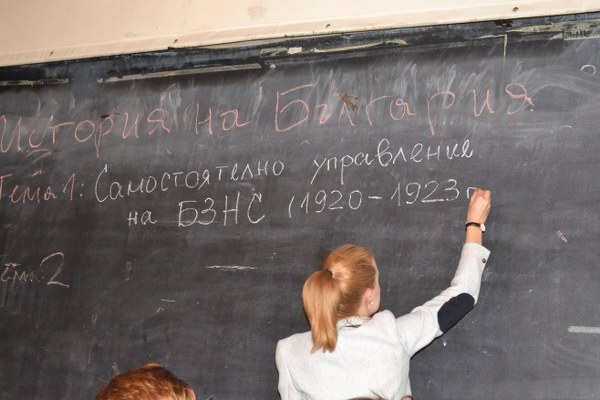 История на България
Тема 1: Самостоятелно управление
на БЗНС (1920-1923г
Тема 2